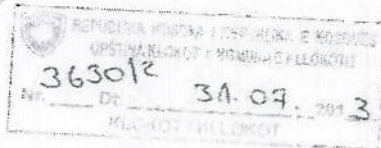 REPUBLIKA KOSOVA / REPUBLIKA E KOSOVËS
OPŠTINA KLOKOT / KOMUNA E KLLOKOTIT
363012
Nr. Dt 31.07. 2013
KLLOKOT / KLLOKOT